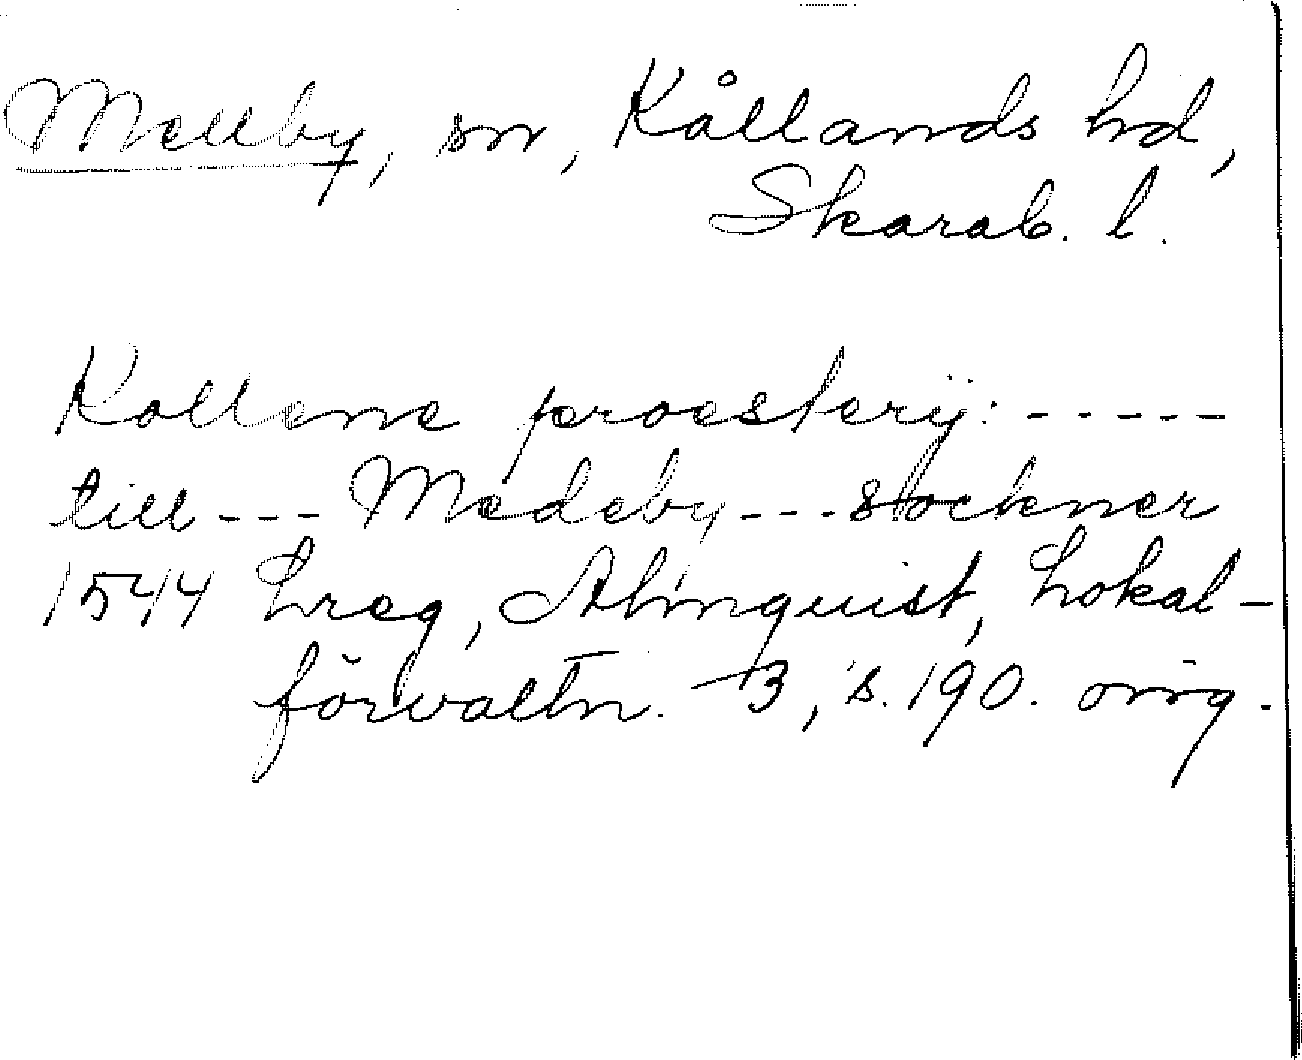 Mellby, sn, Kållands hd,
Skarab. l.
Kollene proesterij: - - - - -
till - - - Medeby - - - stockner
1544 Lreg, Almquist, Lokal-
förvaltn. 3, s. 190. omg.